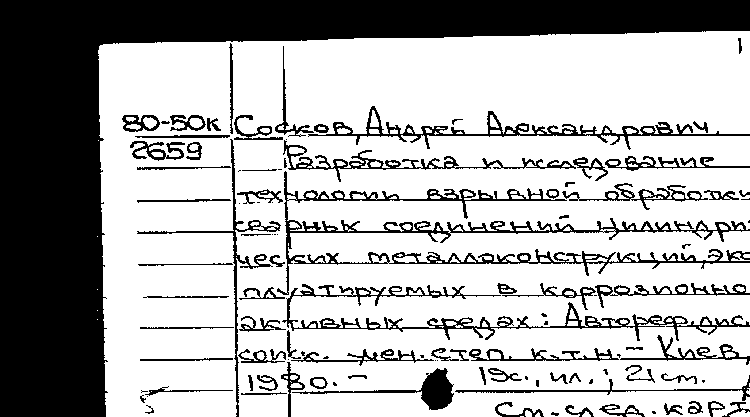 1
80-50к Сосков, Андрей Александрович.
2659 Разработка и исследование
технологии взрывной обработки
сварных соединений цилиндри-
ческих металлоконструкций, экс-
плуатируемых в коррозионно-
активных средах: Автореф. дис.
соиск. учен. степ. к.т.н. - Киев,
1980. - 19с., ил.; 21 см.
См. след. карт